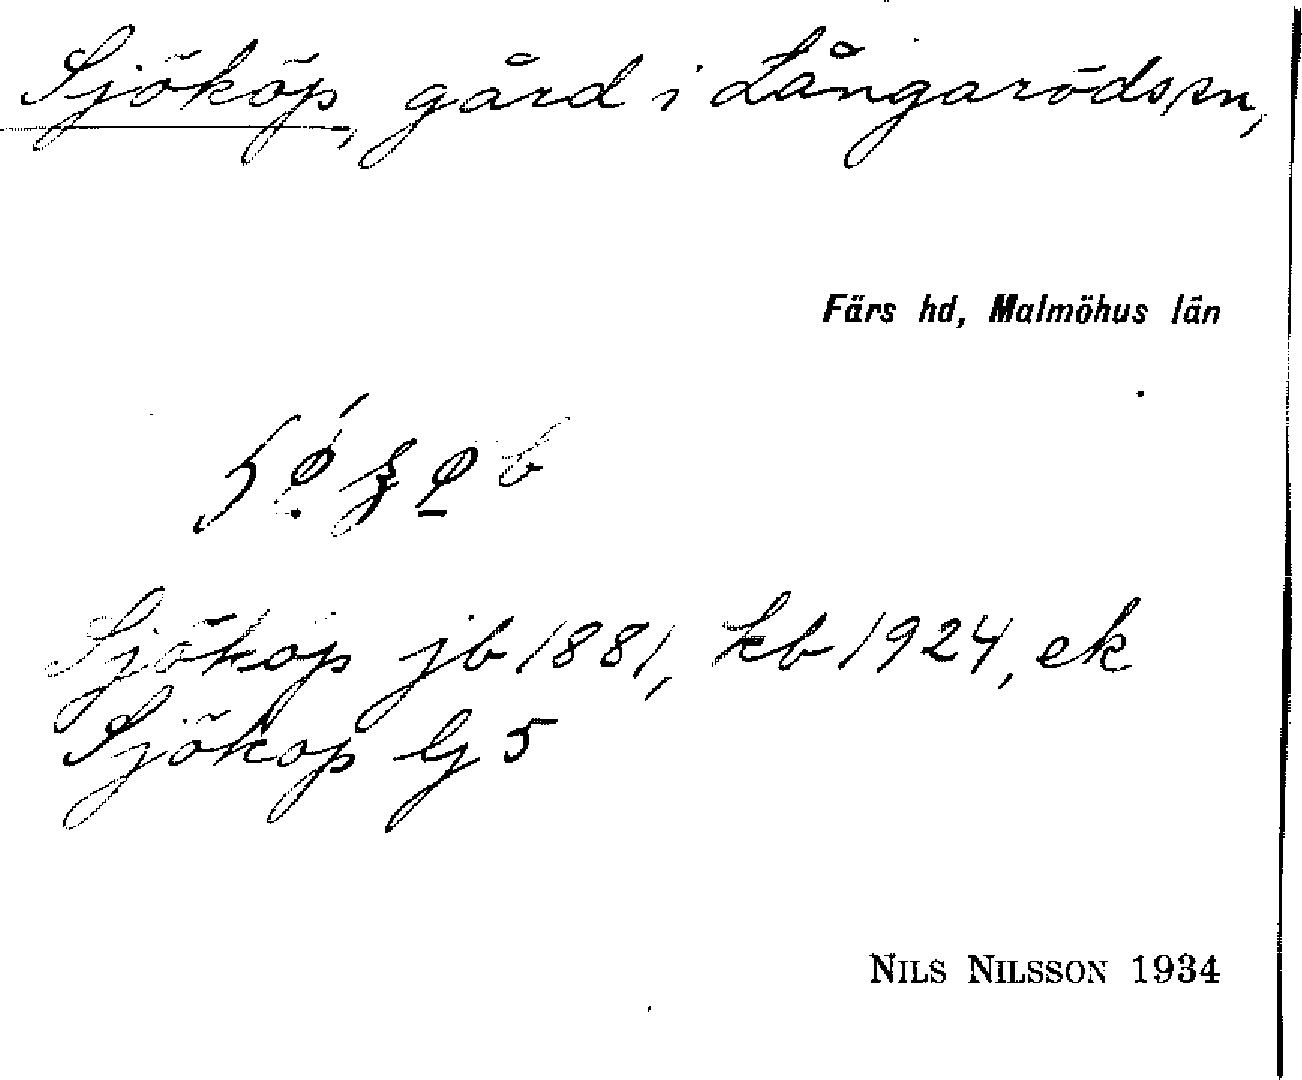 Sjököp, gård i Långarödssn,
Färs hd, Malmöhus län
Sjököp jb 1881, kb 1924, ek
Sjököp Gj 5
NILS NILSSON 1934